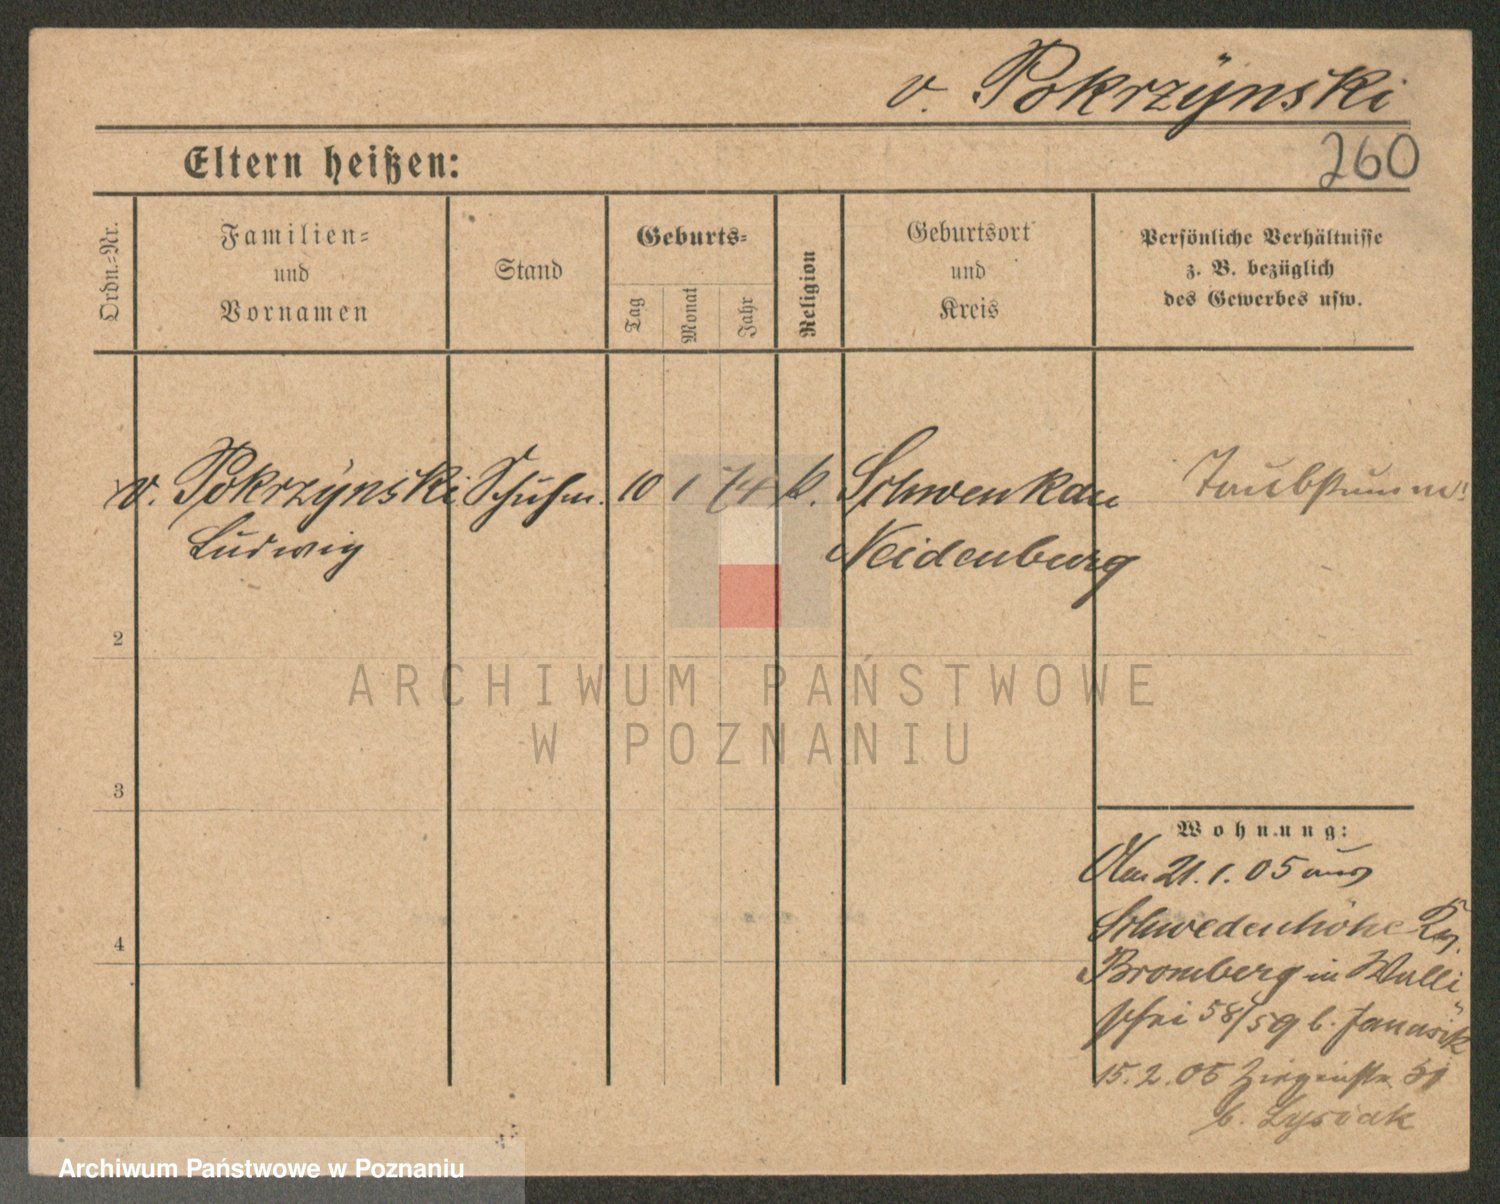 v. Pokrzÿnski
260
Eltern heißen:
Ordn.-Nr.
Familien-
und
Vornamen
Stand
Geburts-
Tag
Monat
Jahr
Religion
Geburtsort
und
Kreis
Persönliche Verhältnisse
z. B. bezüglich
des Gewerbes usw.
v. Pokrzÿnski Schuhm. 10 1 74 k. Schwenkau Taubstumm
Ludwig Neidenburg
2
3
4
Wohnung:
Am 21. 1. 05 aus
Schwedenhöhe
Bromberg in Walli
schei 58/59 b.
15. 2. 05
b. Lysiak
ARCHIWUM PAŃSTWOWE
W POZNANIU
Archiwum Państwowe w Poznaniu